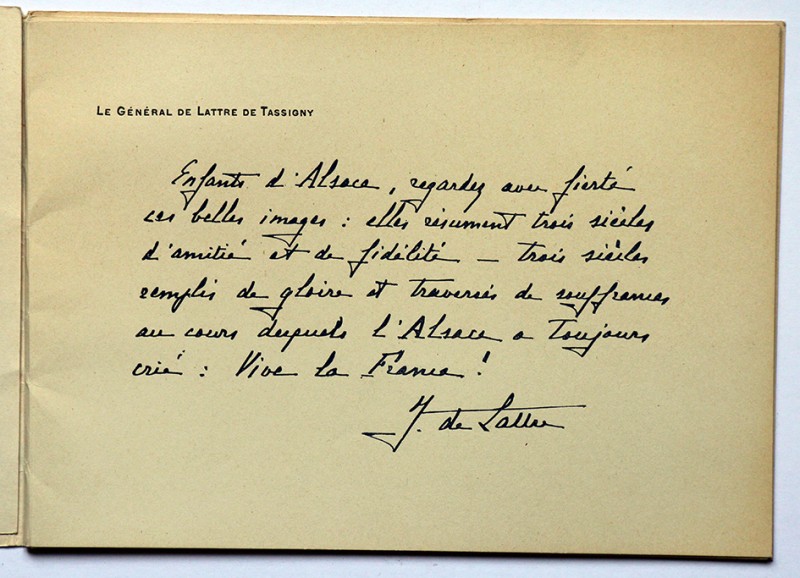 Le Général de Lattre de Tassigny
Enfants d'Alsace, regardez avec fierté
ces belles images : elles résument trois siècles
d'amitié et de fidélité — trois siècles
remplis de gloire et traversés de souffrances
au cours desquels l'Alsace a toujours
crié : Vive la France !
J. de Lattre